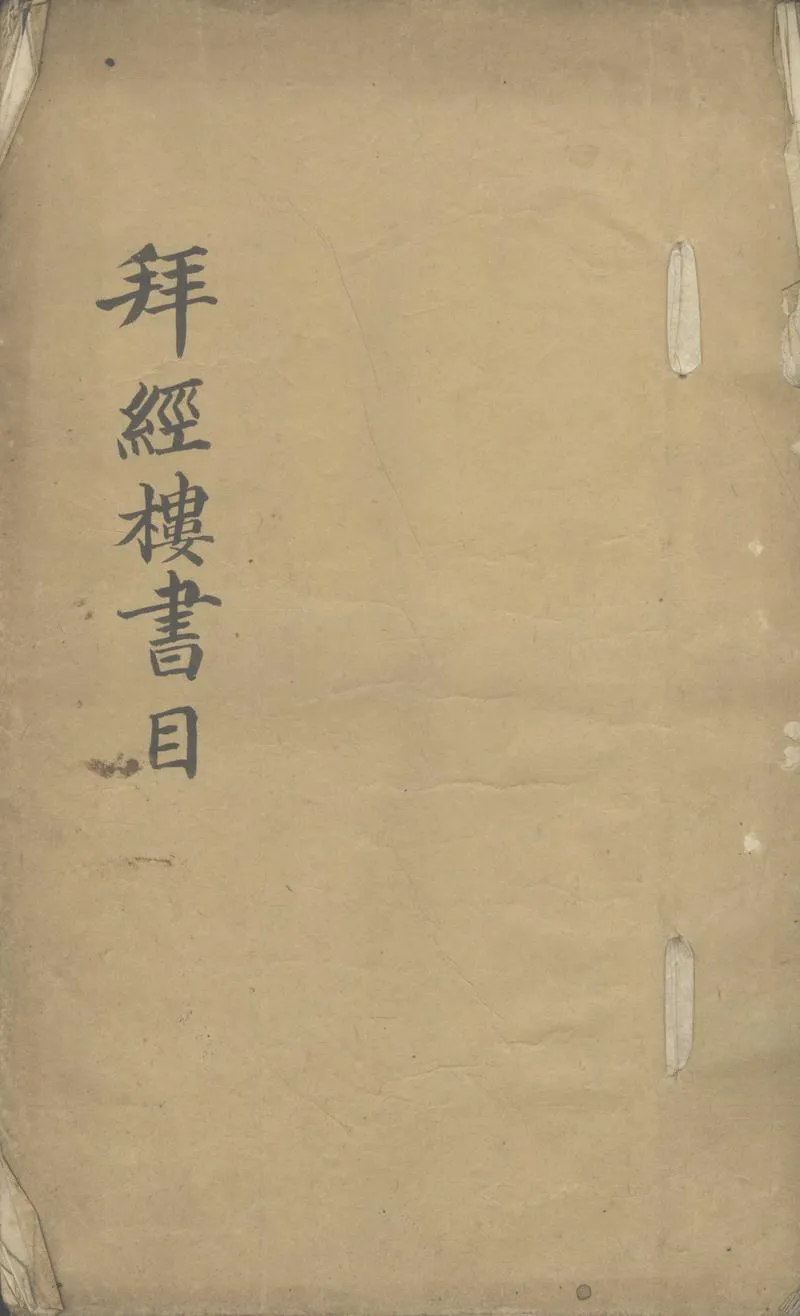 拜經樓書目